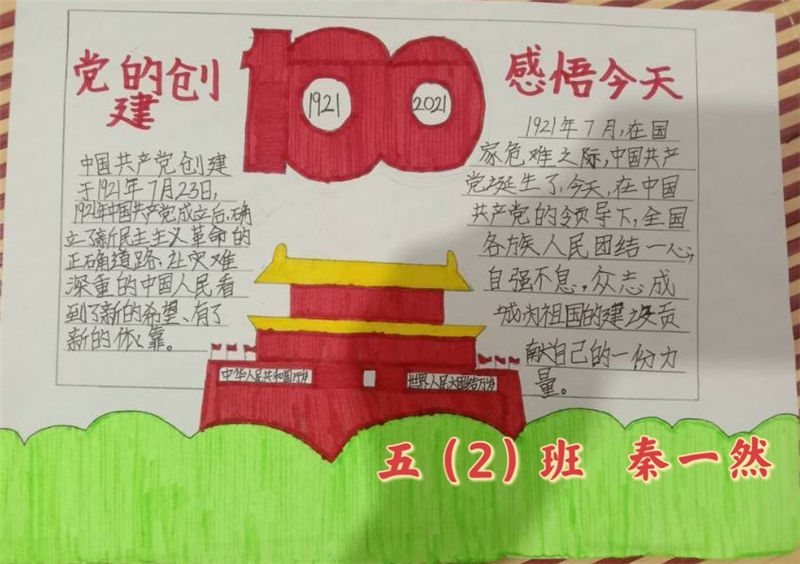 党的创
建
100
1921
2021
感悟今天
中国共产党创建
于1921年7月23日,
1921年中国共产党成立后,确
立了新民主主义革命的
正确道路、让灾难
深重的中国人民看
到了新的希望、有了
新的依靠。
1921年7月,在国
家危难之际,中国共产
党诞生了,今天,在中国
共产党的领导下,全国
各族人民团结一心,
自强不息,众志成
城为祖国的建设贡
献自己的一份力
量。
中华人民共和国万岁
世界人民大团结万岁
五(2)班 秦一然